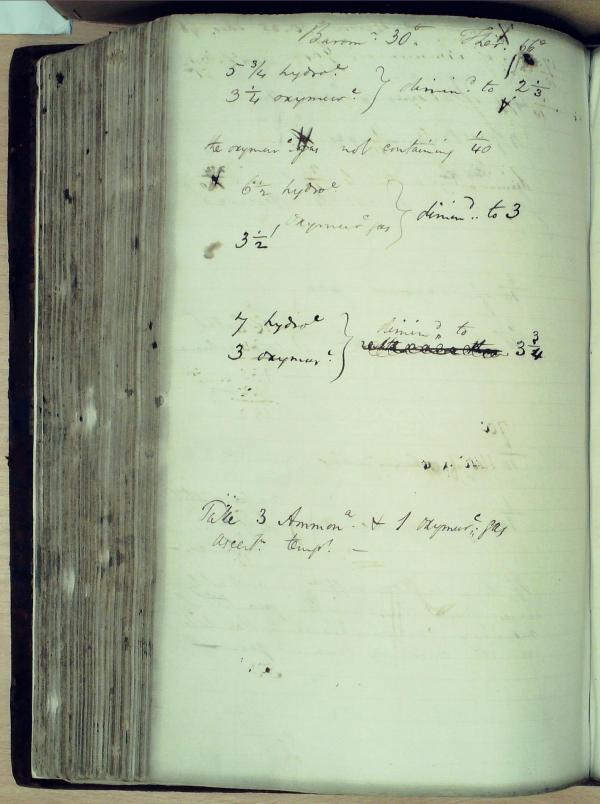 Barom.r 30.o Ther. 66o
5 3/4 hydro.e
3 1/4 oxymur.c } dimin.d to 2 1/3
the oxymur.c gas not containing 1/40
6 1/2 hydro.e
3 1/2 oxymur.c gas } dimin.d to 3
7 hydro.e dimin.d to
3 oxymur.c } 3 3/4
Take 3 Ammon.a & 1 oxymur.c gas
ascert.n temp.r —